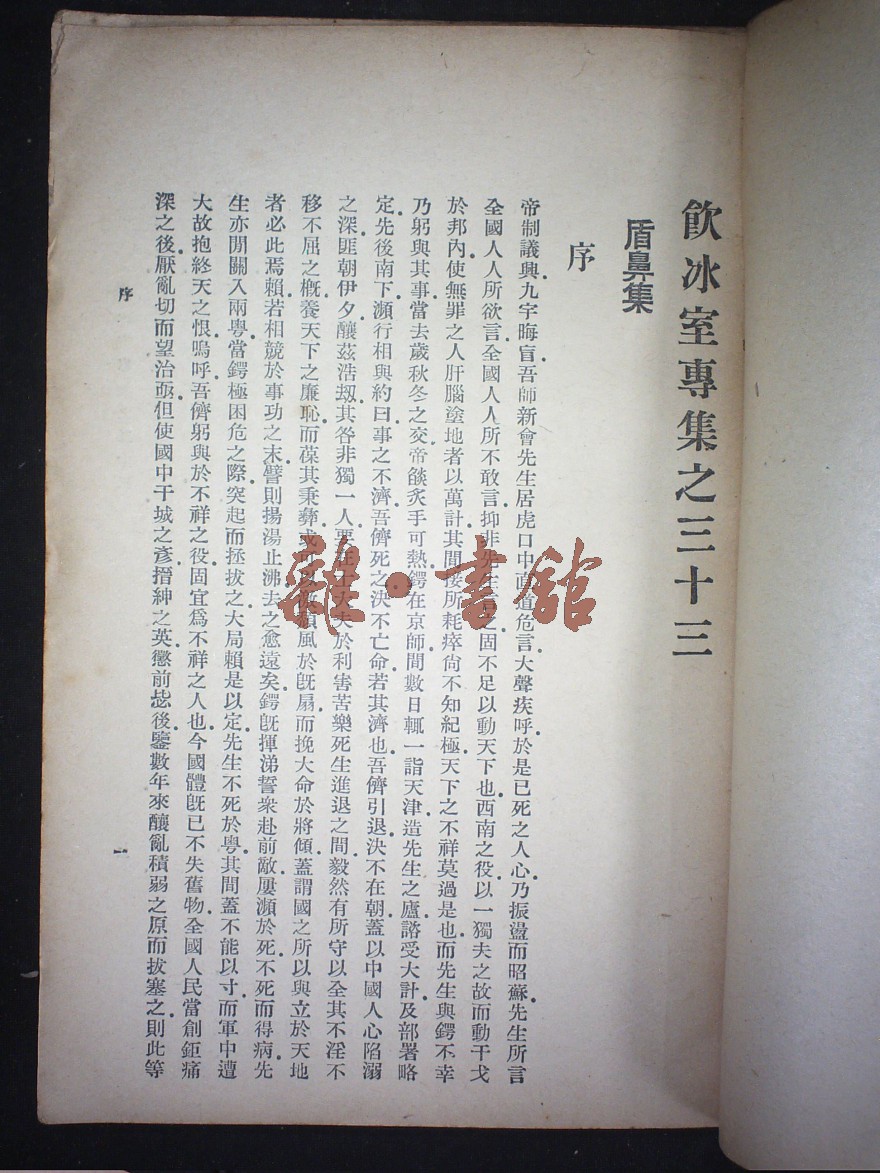 飲冰室專集之三十三
盾鼻集
序
帝制議興九宇晦盲吾師新會先生居虎口中直道危言大聲疾呼於是已死之人心乃振盪而昭蘇先生所言
全國人人所欲言全國人人所不敢言抑非先生言之固不足以動天下也西南之役以一獨夫之故而動干戈
於邦內使無罪之人肝腦塗地者以萬計其間接所耗瘁尙不知紀極天下之不祥莫過是也而先生與鍔不幸
乃躬與其事當去歲秋冬之交帝燄炙手可熱鍔在京師間數日輒一詣天津造先生之廬諮受大計及部署略
定先後南下瀕行相與約曰事之不濟吾儕死之決不亡命若其濟也吾儕引退決不在朝蓋以中國人心陷溺
之深匪朝伊夕釀茲浩刼其咎非獨一人要在士大夫於利害苦樂死生進退之間毅然有所守以全其不淫不
移不屈之槪養天下之廉恥而葆其秉彝或可以激頹風於旣扇而挽大命於將傾蓋謂國之所以與立於天地
者必此焉賴若相競於事功之末譬則揚湯止沸去之愈遠矣鍔旣揮涕誓衆赴前敵屢瀕於死不死而得病先
生亦閒關入兩粵當鍔極困危之際突起而拯拔之大局賴是以定先生不死於粵其間蓋不能以寸而軍中遭
大故抱終天之恨嗚呼吾儕躬與於不祥之役固宜爲不祥之人也今國體旣已不失舊物全國人民當創鉅痛
深之後厭亂切而望治亟但使國中干城之彥搢紳之英懲前毖後鑒數年來釀亂積弱之原而拔塞之則此等
序
一
雜·書館